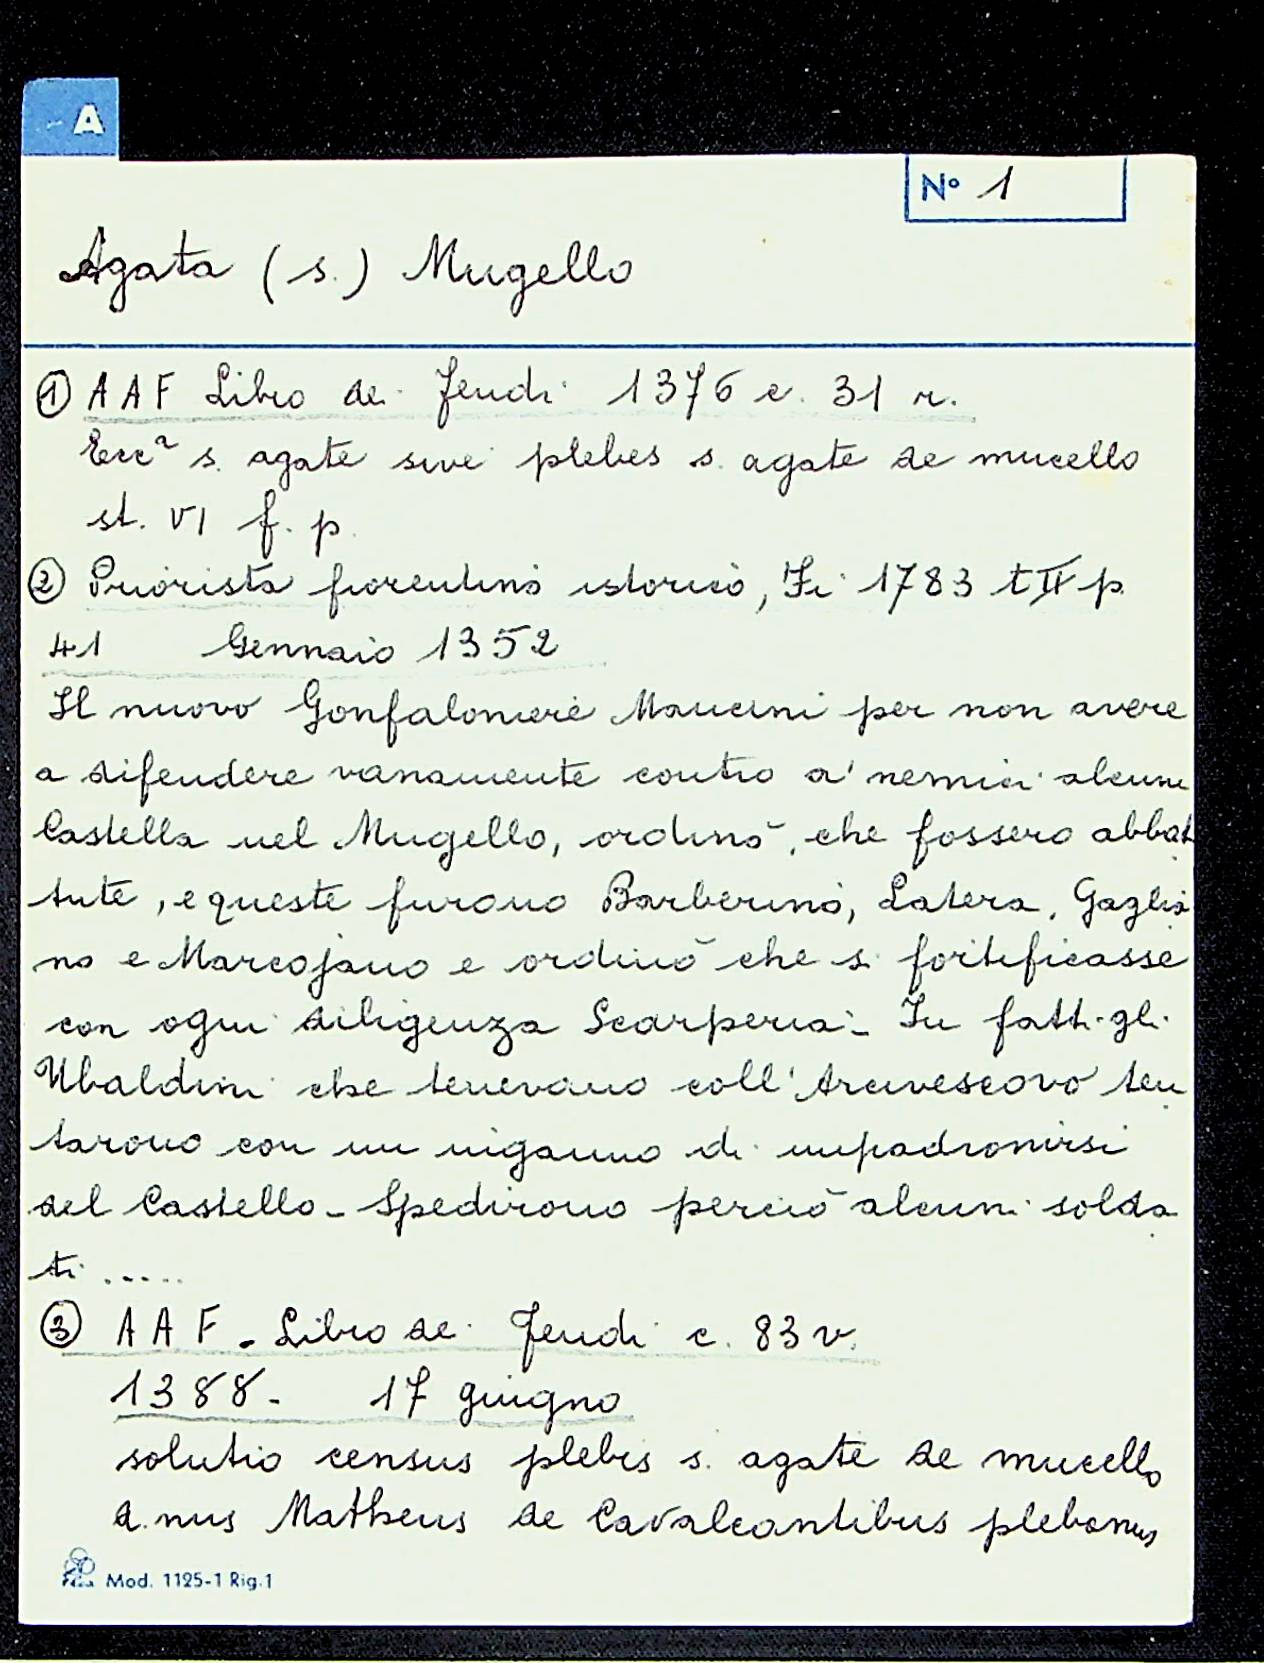 A
N° 1
Agata (s.) Mugello
① AAF Libro dei Feudi 1376 c. 31 r.
Ecc.ª s. agate sive plebes s. agate de mucello
st. VI f. p.
② Priorista fiorentino istorico, Fi 1783 t II p.
41 Gennaio 1352
Il nuovo Gonfaloniere Mancini per non avere
a difendere vanamente contro a' nemici alcune
Castella nel Mugello, ordinò, che fossero abbat
tute, e queste furono Barberino, Latera, Gaglia
no e Marcojano e ordinò che si fortificasse
con ogni diligenza Scarperia - In fatti gli
Ubaldini che tenevano coll'Arcivescovo ten
tarono con un inganno di impadronirsi
del Castello - Spedirono perciò alcuni solda
ti .....
③ AAF - Libro dei Feudi c. 83 v.
1388 - 17 giugno
solutio census plebis s. agate de mucello
d.nus Matheus de Cavalcantibus plebanus
Mod. 1125-1 Rig.1